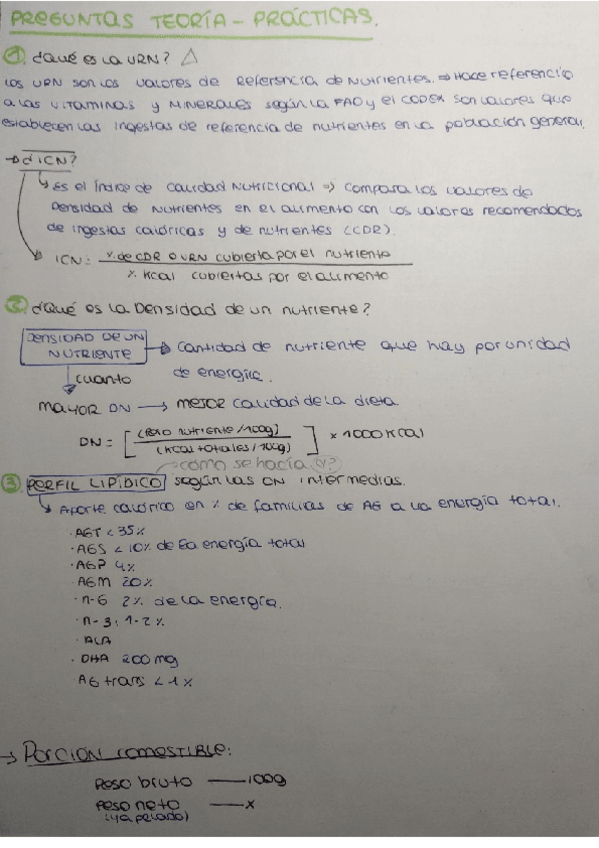 PREGUNTAS TEORÍA - PRÁCTICAS.
1. ¿Qué es la VRN?
Los VRN son los valores de Referencia de Nutrientes. ⇒ Hace referencia
a las VITAMINAS y MINERALES según la FAO y el CODEX son valores que
establecen las ingestas de referencia de nutrientes en la población general.
→ ¿ICN?
↳ Es el índice de calidad Nutricional ⇒ compara los valores de
Densidad de Nutrientes en el alimento con los valores recomendados
de ingestas calóricas y de nutrientes (CDR).
ICN: % de CDR o VRN cubierta por el nutriente
% Kcal cubiertas por el alimento
2. ¿Qué es la Densidad de un nutriente?
DENSIDAD DE UN NUTRIENTE → Cantidad de nutriente que hay por unidad
de energía.
cuanto
MAYOR DN → MEJOR calidad de la dieta
DN = [(Peso nutriente/100g) / (Kcal totales/100g)] × 1000 Kcal
como se hacía
3. PERFIL LIPÍDICO según las ON intermedias.
↳ Aporte calórico en % de familias de AG a la energía total.
· AGT < 35%
· AGS < 10% de la energía total
· AGP 4%
· AGM 20%
· n-6 2% de la energía.
· n-3: 1-2%
· ALA
· DHA 200mg
AG trans < 1%
→ PORCIÓN COMESTIBLE:
Peso bruto — 100g
Peso neto — x
(ya pelado)